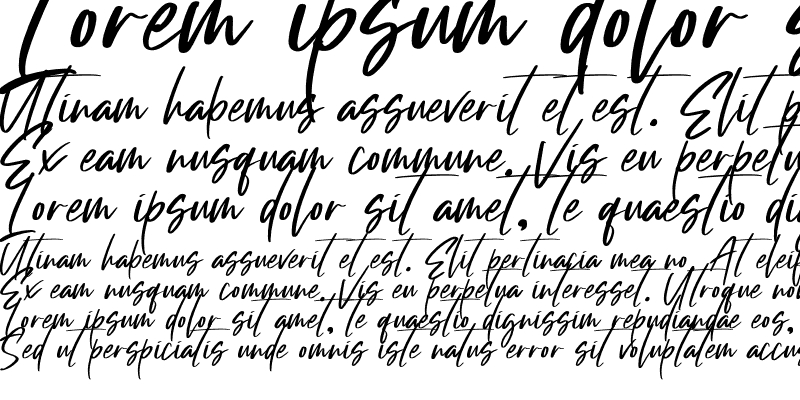 Lorem ipsum dolor
Utinam habemus assueverit et est. Elit
Ex eam nusquam commune. Vis eu
Lorem ipsum dolor sit amet, te quaestio
Utinam habemus assueverit et est. Elit pertinacia mea no. At
Ex eam nusquam commune. Vis eu perpetua interesset. Utroque
Lorem ipsum dolor sit amet, te quaestio dignissim repudiandae eos,
Sed ut perspiciatis unde omnis iste natus error sit voluptatem